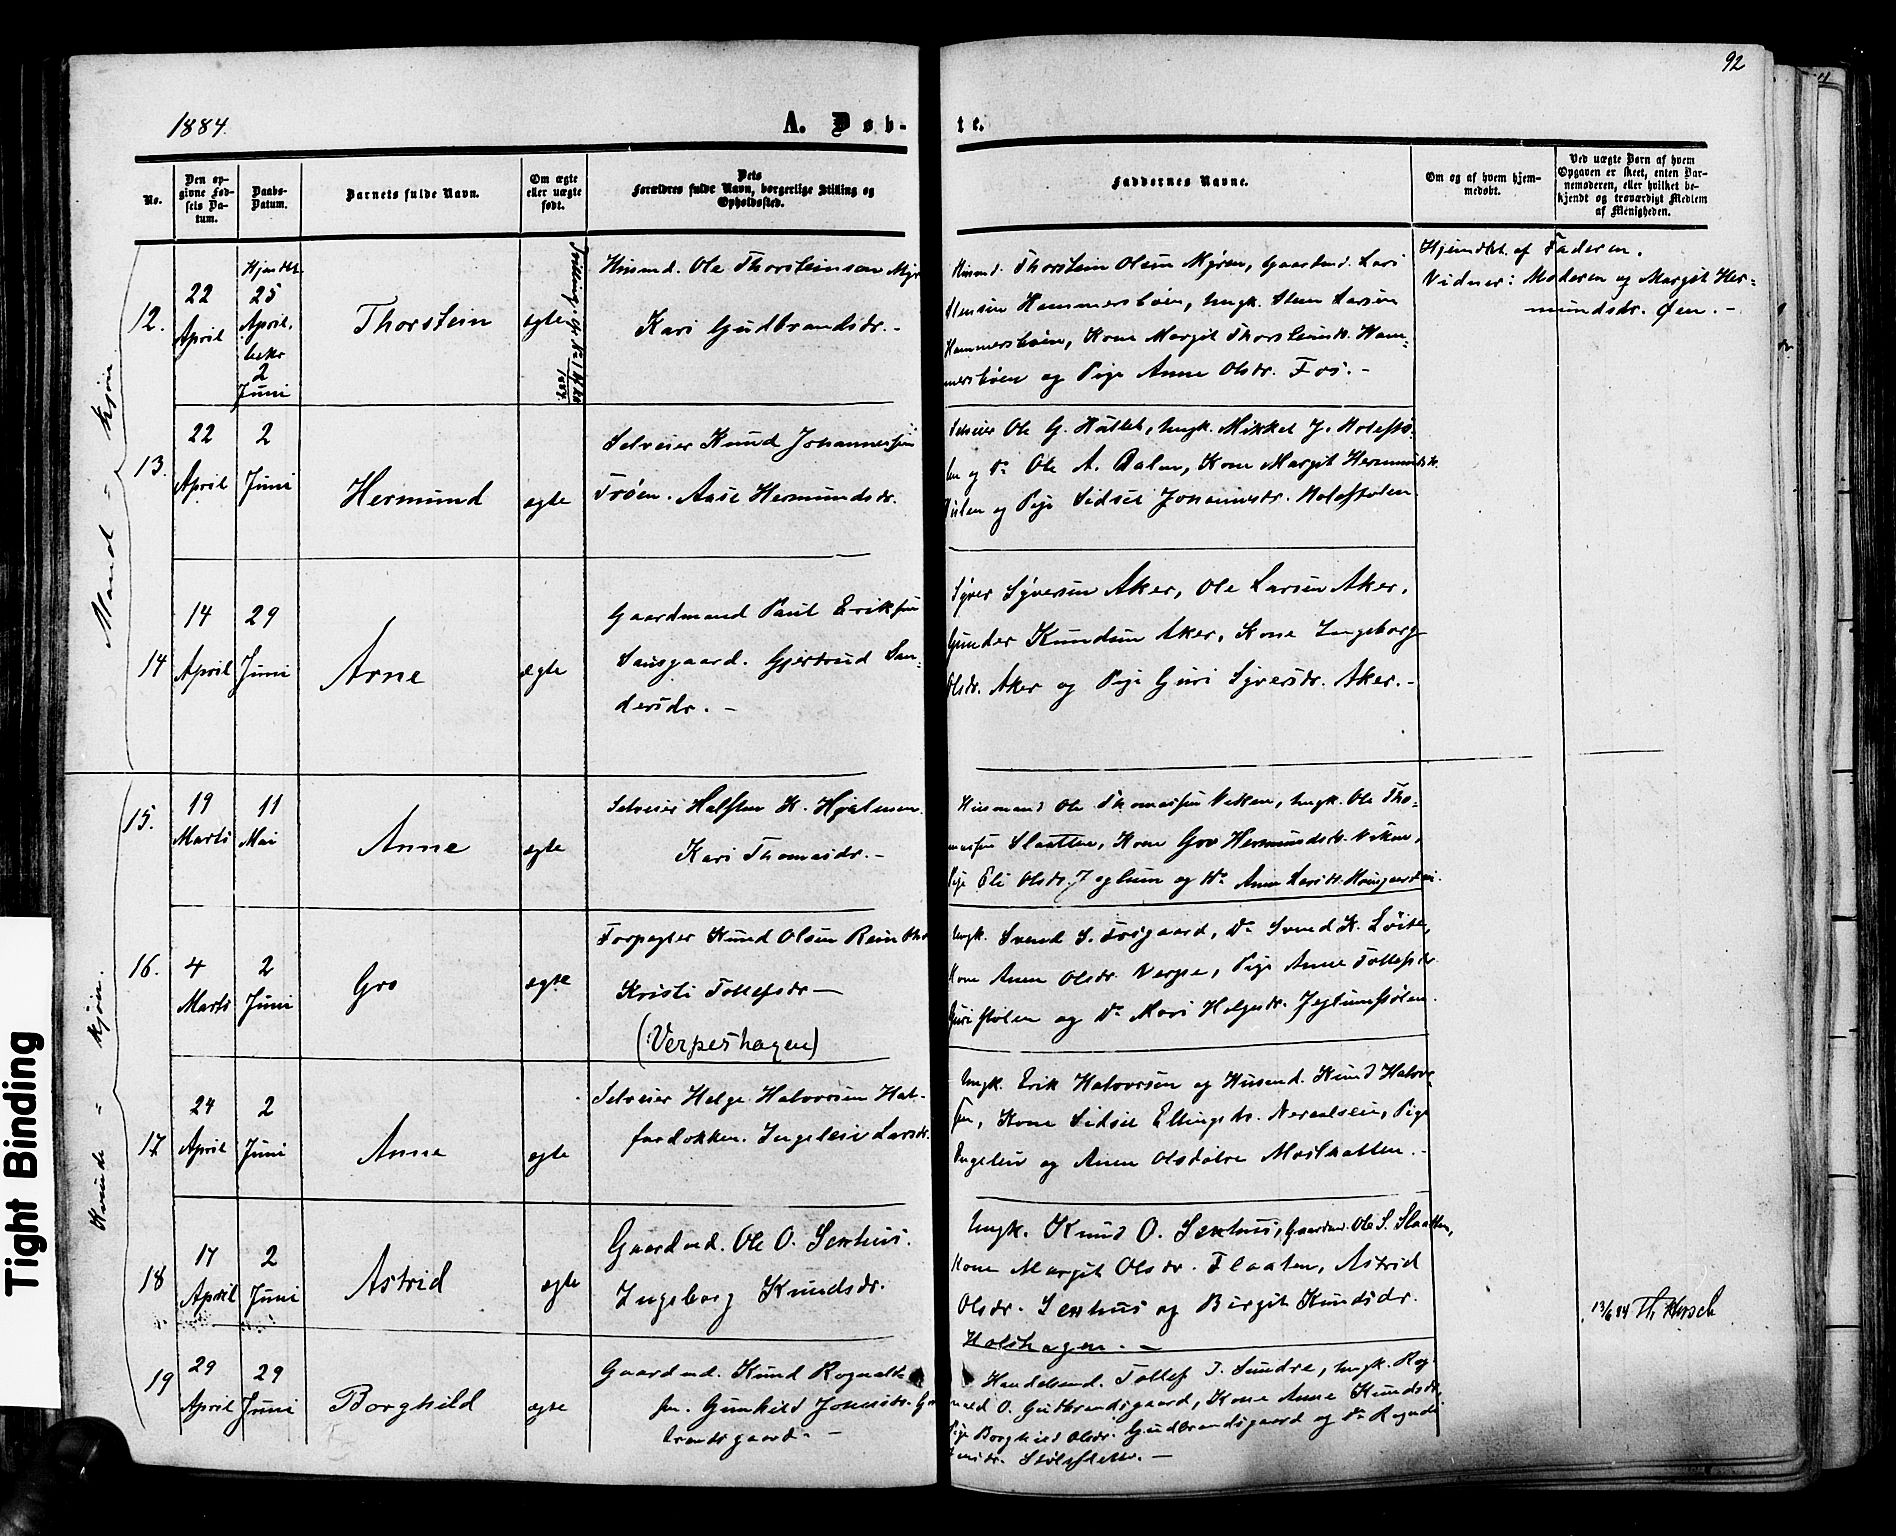 92
1884.
A. Døb-
te.
No.
Den op-
givne Fød-
sels Da-
tum.
Daabs-
Datum.
Barnets fulde Navn.
Om ægte
eller uægte
født.
Dets
Forældres fulde Navn, borgerlige Stilling og
Opholdssted.
Faddernes Navne.
Om og af hvem hjem-
medøbt.
Ved uægte Børn af hvem
Opgaven er skeet, enten Bar-
nemoderen, eller hvilket be-
kjendt og troværdigt Medlem
af Menigheden.
Mand = kjøn
12.
22
April
Hjemdbt
25
April.
bekr
2
Juni
Thorstein
egte
Husmd. Ole Thorsteinsen Myr
Kari Gudbrandsdr. -
Husmd. Thorstein Olsen Myren, Gaardmd. Lars
Stensen Hammersbøen, Ungk. Sten Larsen
Hammersbøen, Kone Margit Thorsteinsdr. Ham=
mersbøen og Pige Anne Olsdr. Fos. -
Hjemdbt. af Faderen.
Vidner: Moderen og Margit Her=
mundsdr. Øen. -
13.
22
April
2
Juni
Hermund
egte
Selveier Knud Johannessen
Trøen. Aase Hermundsdr.
Selveier Ole G. Hullet, Ungk. Mikkel J. Holestø-
len og Do Ole A. Dalen, Kone Margit Hermundsdr.
og Pige Sidsel Johannesdr. Holestølen
14
14
April
29
Juni
Arne
egte
Gaardmand Paul Eriksen
Sausgaard. Gjertrud San-
dersdr. -
Syver Syversen Aker, Ole Larsen Aker,
Gunder Knudsen Aker, Kone Ingeborg
Olsdr. Aker og Pige Guri Syversdr. Aker. -
Kvinde = kjøn.
15.
19
Marts
11
Mai
Anne
egte
Selveier Halsten K. Hjelmen
Kari Thomasdr. -
Husmand Ole Thomassen Viken, Ungk. Ole Tho=
massen Slaatten, Kone Gro Hermundsdr. Viken,
Pige Eli Olsdr. Jeglum og Do Anne Larsdr.
16.
4
Marts
2
Juni
Gro
egte
Forpagter Knud Olsen
Kristi Tollefsdr -
(Verpeshagen)
Ungk. Svend S. Fosgaard, Do Svend K. Løite,
Kone Anne Olsdr. Verpe, Pige Anne Tollefsdr
Guristølen og Do Mari Helgesdr. Jeglumstølen.
17
24
April
2
Juni
Anne
egte
Selveier Helge Halvorsen Hal-
fardokken. Ingeleiv Larsdr.
Ungk. Erik Halvorsen og Husmd. Knud Halvor-
sen, Kone Sidsel Ellingsdr. Pige
Ingeleiv og Anne Olsdøtre
18
17
April
2
Juni
Astrid
egte
Gaardmd. Ole O. Sexhus.
Ingeborg Knudsdr.
Ungk. Knud O. Sexhus, Gaardmd. Ole S. Slaatten,
Kone Margit Olsdr. Flaaten, Astrid
Olsdr. Sexhus og Birgit Knudsdr.
Holshagen. -
13/6 84 Th. Kirsch
19
29
April
29
Juni
Borghild
egte
Gaardmd. Knud Rognalds
sen. Gunhild Jonsdr. Gu
brandsgaard. -
Handelsmd. Tollef T. Sundre, Ungk. Rog-
nald O. Gudbrandsgaard, Kone Anne Knudsdr,
Pige Borghild Olsdr. Gudbrandsgaard og Do
Stølesletten. -
Tight Binding